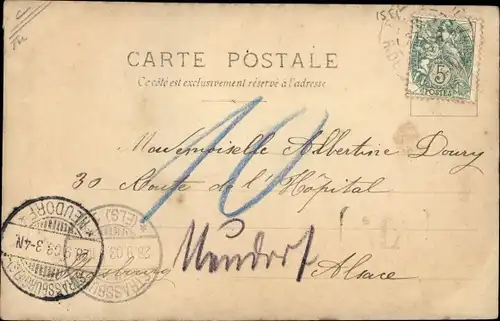 CARTE POSTALE
Ce côté est exclusivement réservé à l'adresse
5
POSTES
10
Mademoiselle Albertine Doury
30 Route de l'Hôpital
Neudorf
Strasbourg
Alsace
NEUDORF
3-4N.
STRASSBURG
(ELS)